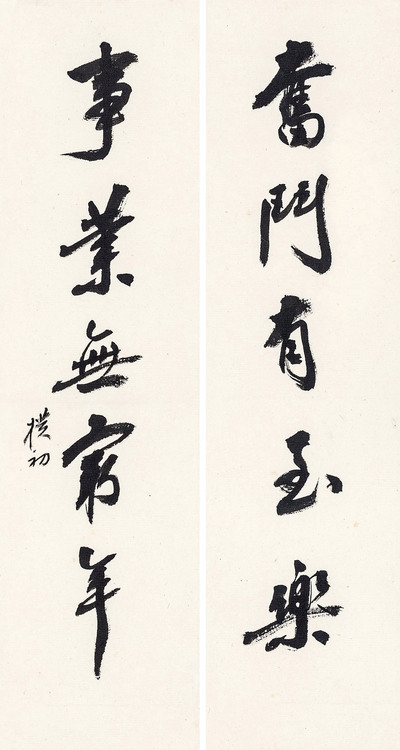 奮鬥有至樂
事業無窮年
樸初